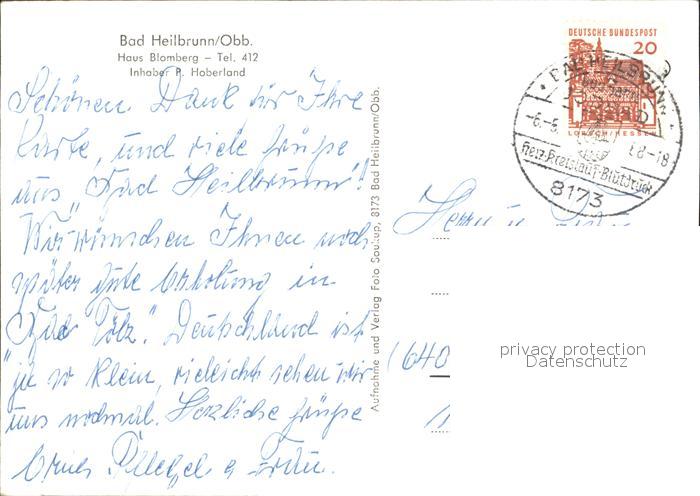 Bad Heilbrunn/Obb.
Haus Blomberg – Tel. 412
Inhaber P. Haberland
Schönen Dank für Ihre
Karte, und viele Grüße
aus "Bad Heilbrunn"!
Wir wünschen Ihnen noch
später gute Erholung in
"Bad Tölz". Deutschland ist
ja so klein, vieleicht sehen wir
uns nochmal. Herzliche Grüße
Frau.
Aufnahme und Verlag Foto Soukup, 8173 Bad Heilbrunn/Obb.
DEUTSCHE BUNDESPOST
20
LORSCH/HESSEN
BAD HEILBRUNN
-6.-5.
-18
Herz-Kreislauf-Blutdruck
8173
Herrn u.
(640
privacy protection
Datenschutz